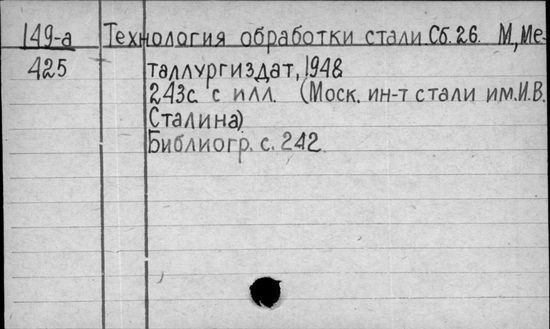 149-а Технология обработки стали. Сб. 26. М, Ме-
425 таллургиздат, 1948
243с. с илл. (Моск. ин-т стали им. И.В.
Сталина)
Библиогр. с. 242